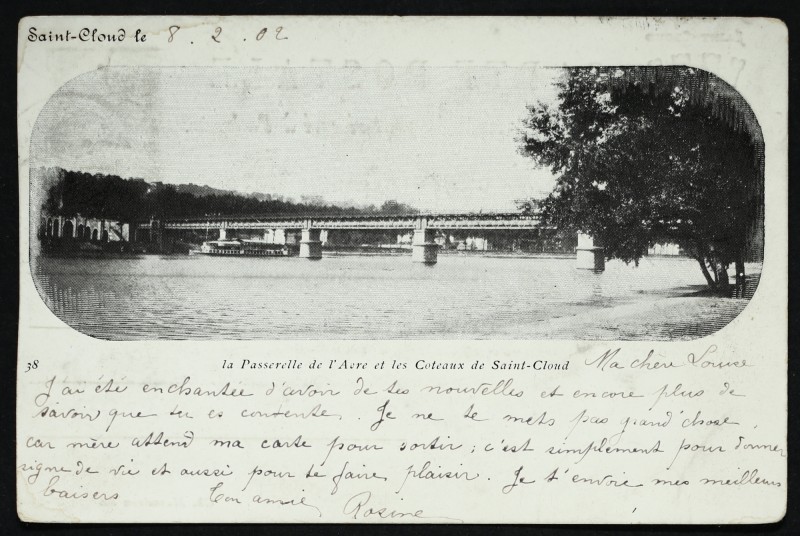 Saint-Cloud le 8. 2. 02
38 la Passerelle de l'Avre et les Coteaux de Saint-Cloud Ma chère Louise
J'ai été enchantée d'avoir de tes nouvelles et encore plus de
savoir que tu es contente. Je ne te mets pas grand'chose,
car mère attend ma carte pour sortir; c'est simplement pour donner
signe de vie et aussi pour te faire plaisir. Je t'envoie mes meilleurs
baisers Ton amie Rosine